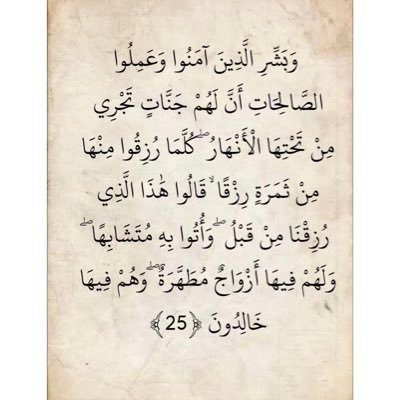 وَبَشِّرِ الَّذِينَ آمَنُوا وَعَمِلُوا
الصَّالِحَاتِ أَنَّ لَهُمْ جَنَّاتٍ تَجْرِي
مِنْ تَحْتِهَا الْأَنْهَارُ ۖ كُلَّمَا رُزِقُوا مِنْهَا
مِنْ ثَمَرَةٍ رِزْقًا ۙ قَالُوا هَٰذَا الَّذِي
رُزِقْنَا مِنْ قَبْلُ ۖ وَأُتُوا بِهِ مُتَشَابِهًا ۖ
وَلَهُمْ فِيهَا أَزْوَاجٌ مُطَهَّرَةٌ ۖ وَهُمْ فِيهَا
خَالِدُونَ ﴿25﴾